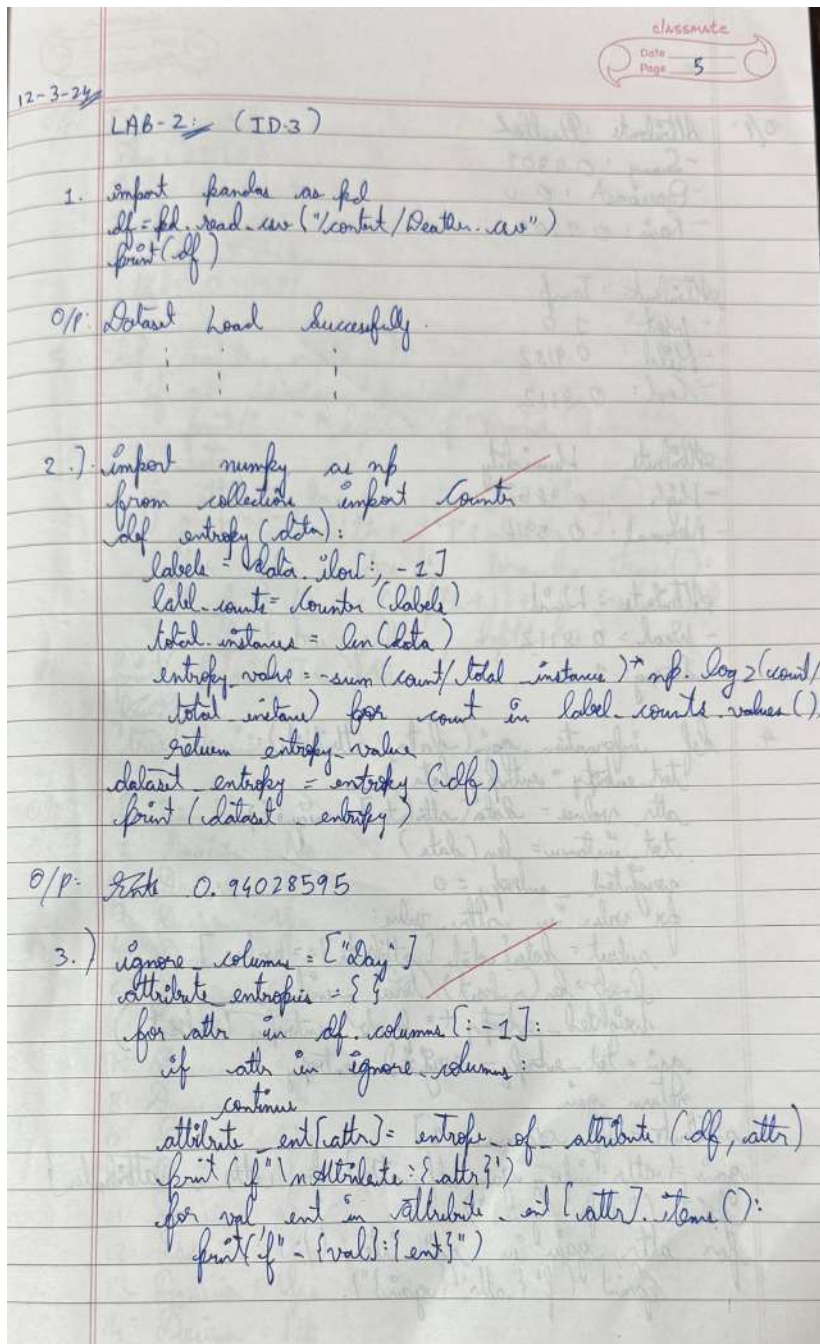 classmate
Date
Page 5
12-3-24
LAB-2: (ID3)
1. import pandas as pd
df = pd.read_csv("/content/Weather.csv")
print(df)
O/P: Dataset Load Succesfully.
2.) import numpy as np
from collection import Counter
def entropy (data):
labels = data.iloc[:, -1]
label_counts = Counter (labels)
total_instances = len(data)
entropy_value = -sum (count/total_instance) * np.log2(count/
total_instane) for count in label_counts.values()
return entropy_value
dataset_entropy = entropy (df)
print (dataset_entropy)
O/P: 0.94028595
3.) ignore_columns = ["Day"]
attribute_entropies = { }
for attr in df.columns[:-1]:
if attr in ignore_columns:
continue
attribute_ent[attr] = entrope_of_attribute (df, attr)
print (f"\nAttribute: {attr}")
for val, ent in attribute_ent[attr].items():
print(f" - {val}: {ent}")